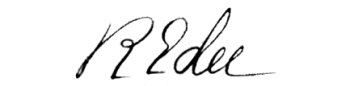 R Edee